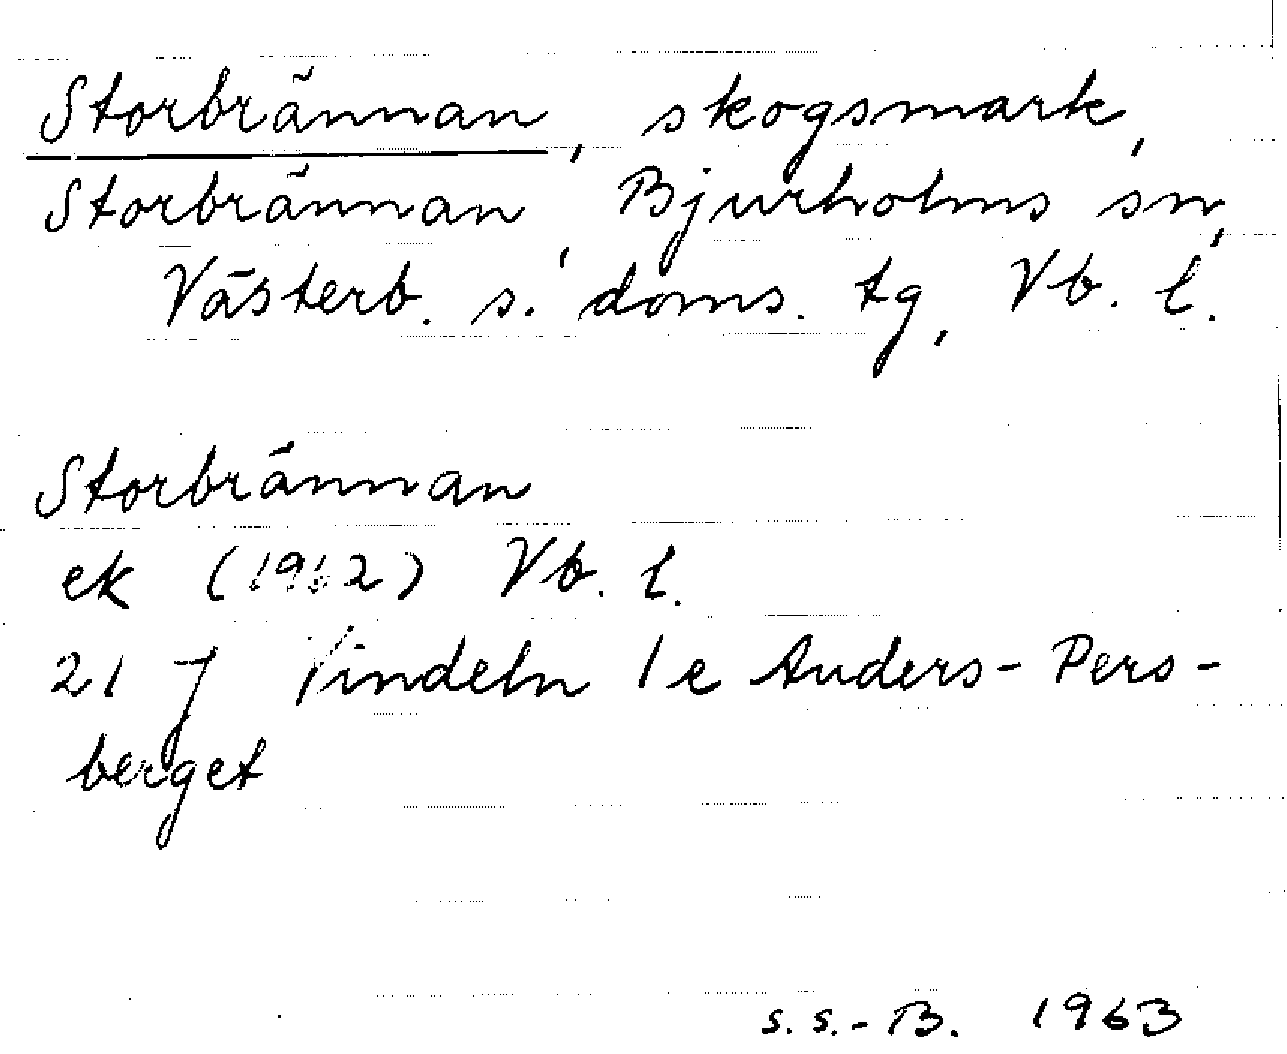 Storbrännan, skogsmark,
Storbrännan, Bjurholms sn,
Västerb. s. doms. tg, Vb. l.
Storbrännan
ek (1962) Vb. l.
21 J Vindeln 1 e Anders-Pers-
berget
s. s.-B. 1963